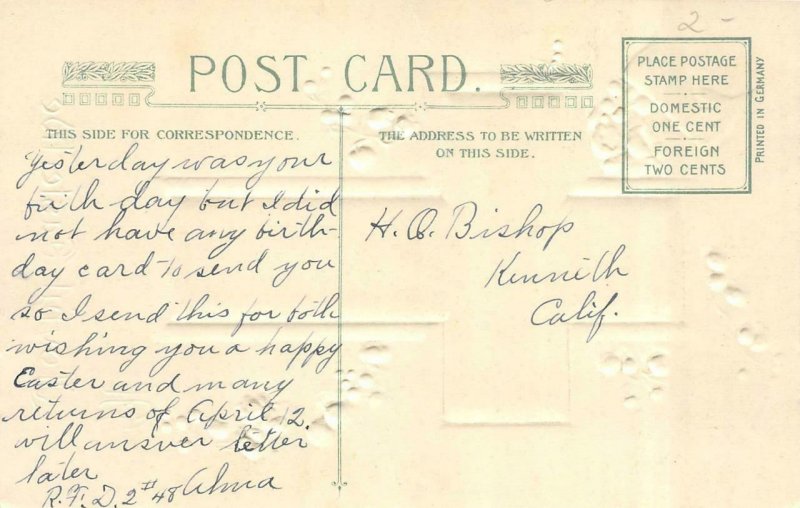 2-
POST CARD.
THIS SIDE FOR CORRESPONDENCE.
THE ADDRESS TO BE WRITTEN
ON THIS SIDE.
PLACE POSTAGE
STAMP HERE
DOMESTIC
ONE CENT
FOREIGN
TWO CENTS
PRINTED IN GERMANY
Yesterday was your
birth day but I did
not have any birth-
day card to send you
so I send this for both
wishing you a happy
Easter and many
returns of April 12.
will answer letter
later
R.F.D. 2 # 48 Alma
H. O. Bishop
Kennith
Calif.